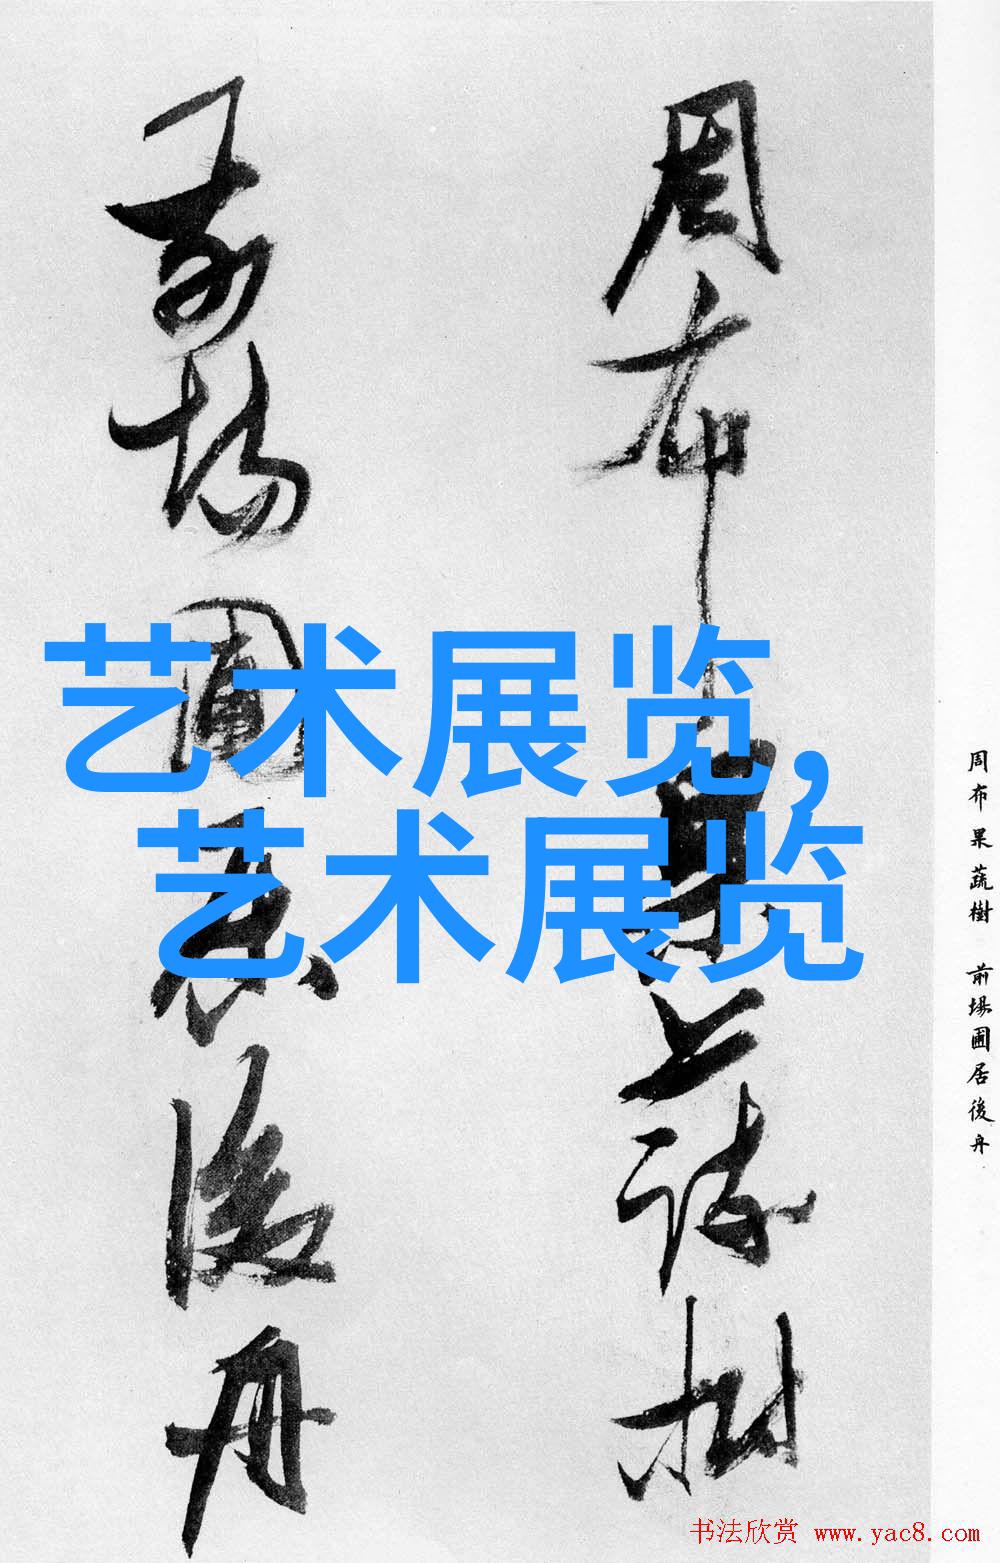 周布果蔬樹
前場圃居後舟
艺术展览,
艺术展览
周布果蔬樹 前場圃居後舟
书法欣赏 www.yac8.com